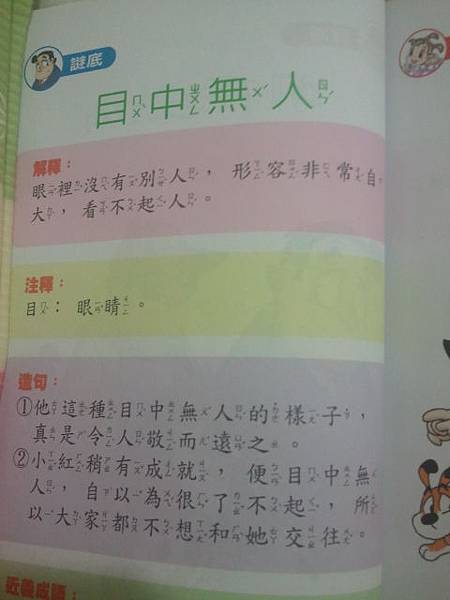 謎底
目中無人
解釋：
眼裡沒有別人，形容非常自
大，看不起人。
注釋：
目：眼睛。
造句：
①他這種目中無人的樣子，
真是令人敬而遠之。
②小紅稍有成就，便目中無
人，自以為很了不起，所
以大家都不想和她交往。
近義成語：